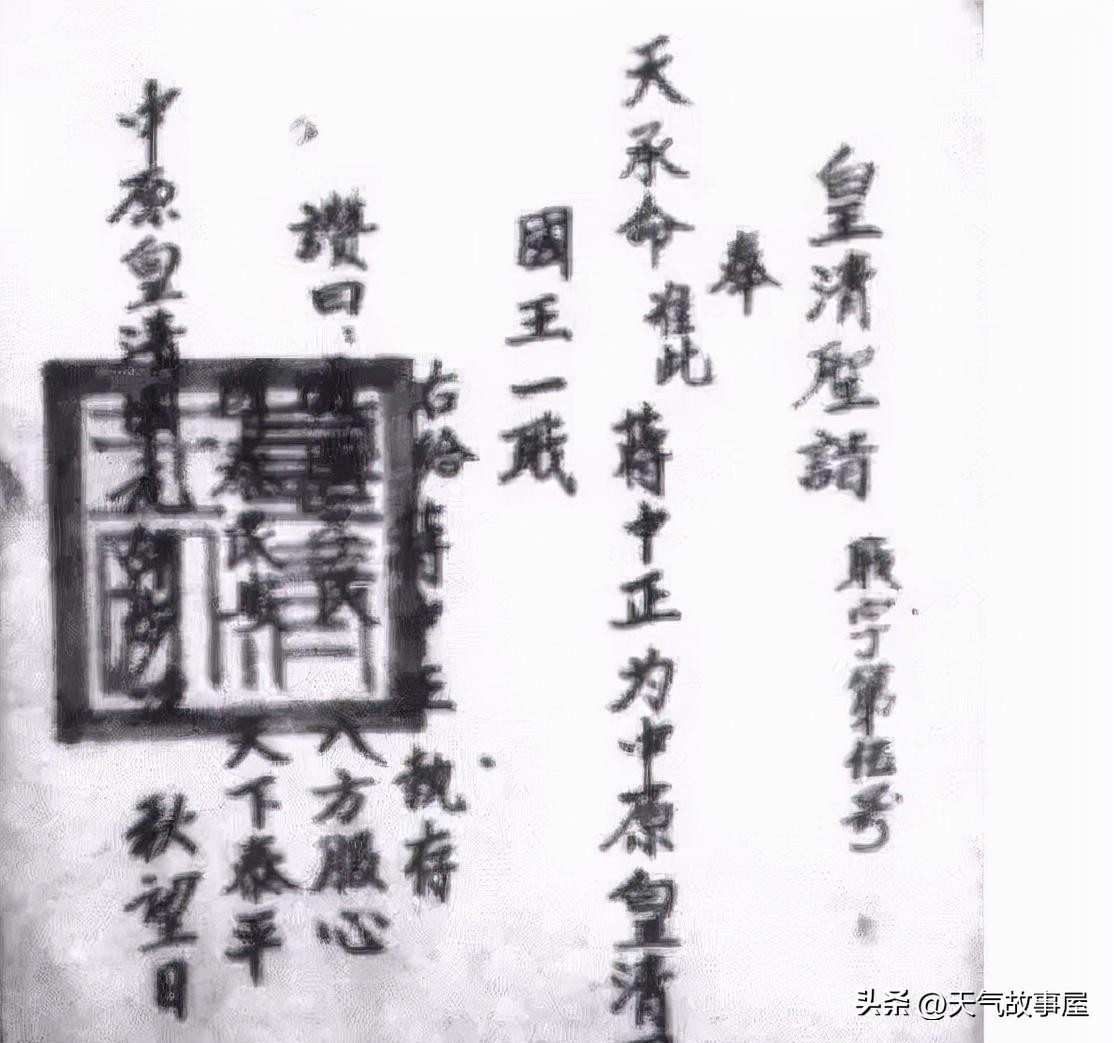 皇清聖誥 职字第伍号
奉
天承命 准此 蔣中正为中原皇清
國王一职
右给蔣中正 执存
讚曰: 八方服心
民安 天下泰平
中原皇清 秋望日
头条 @天气故事屋